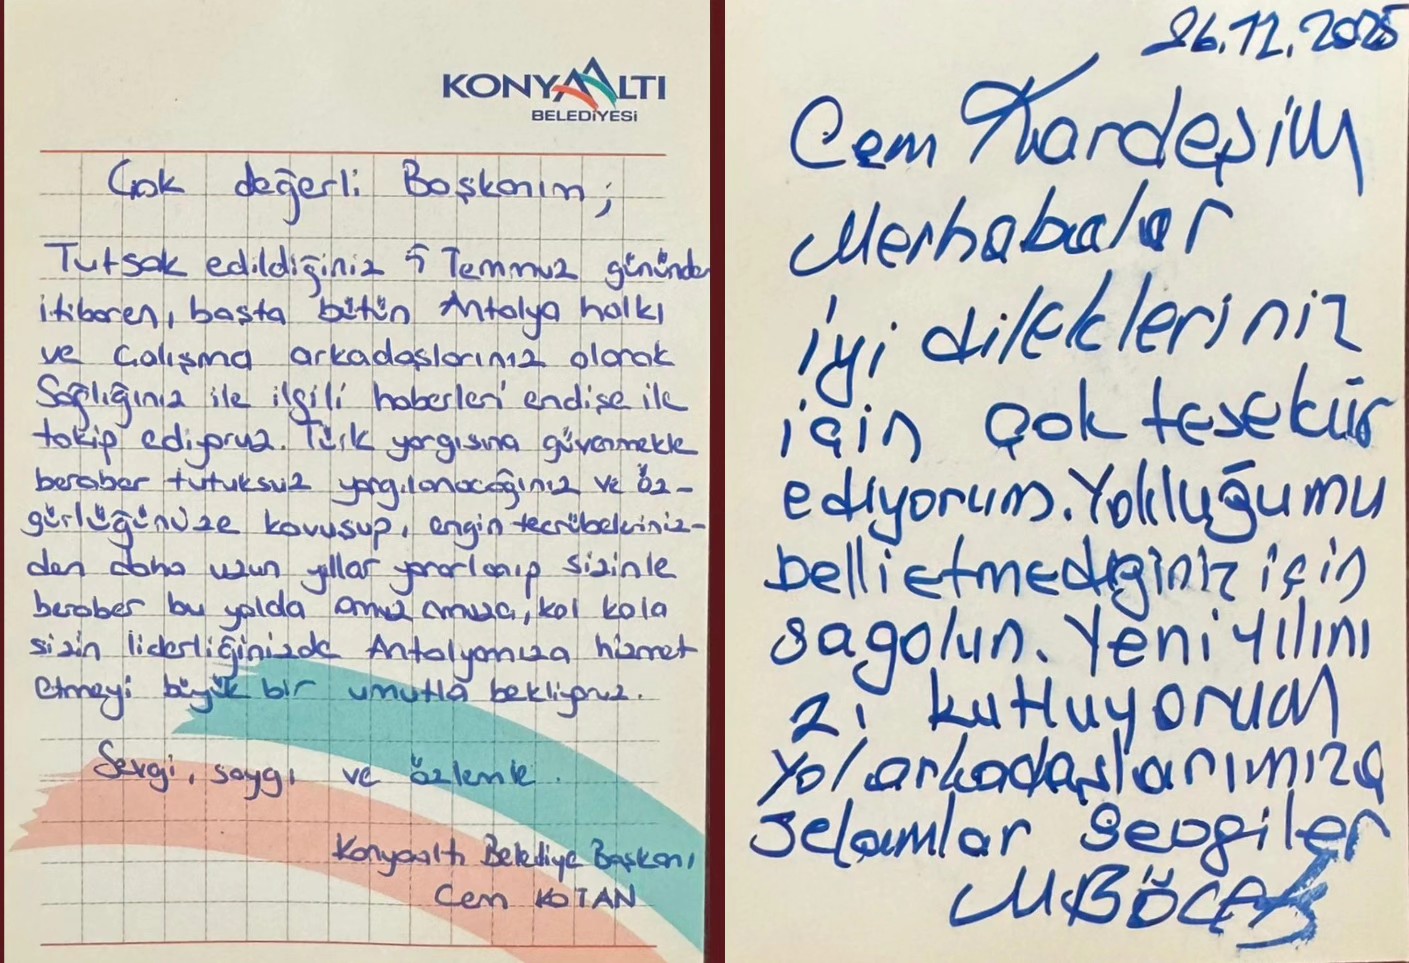 KONYAALTI
BELEDİYESİ
Çok değerli Başkanım;
Tutsak edildiğiniz 5 Temmuz gününde
itibaren, başta bütün Antalya halkı
ve Çalışma arkadaşlarınız olarak
Sağlığınız ile ilgili haberleri endişe ile
takip ediyoruz. Türk yargısına güvenmekle
beraber tutuksuz yargılanacağınız ve öz-
gürlüğünüze kavuşup, engin tecrübeleriniz-
den daha uzun yıllar yararlanıp sizinle
beraber bu yolda omuz omuza, kol kola
sizin liderliğinizde Antalyamıza hizmet
etmeyi büyük bir umutla bekliyoruz.
Sevgi, saygı ve özlemle.
Konyaaltı Belediye Başkanı
Cem KOTAN
26.12.2025
Cem Kardeşim
Merhabalar
iyi dilekleriniz
için çok teşekür
ediyorum. Yokluğumu
belli etmediğiniz için
sagolun. Yeni yılını
zı kutluyorum
yol arkadaşlarımıza
selamlar sevgiler
M.BÖCEK